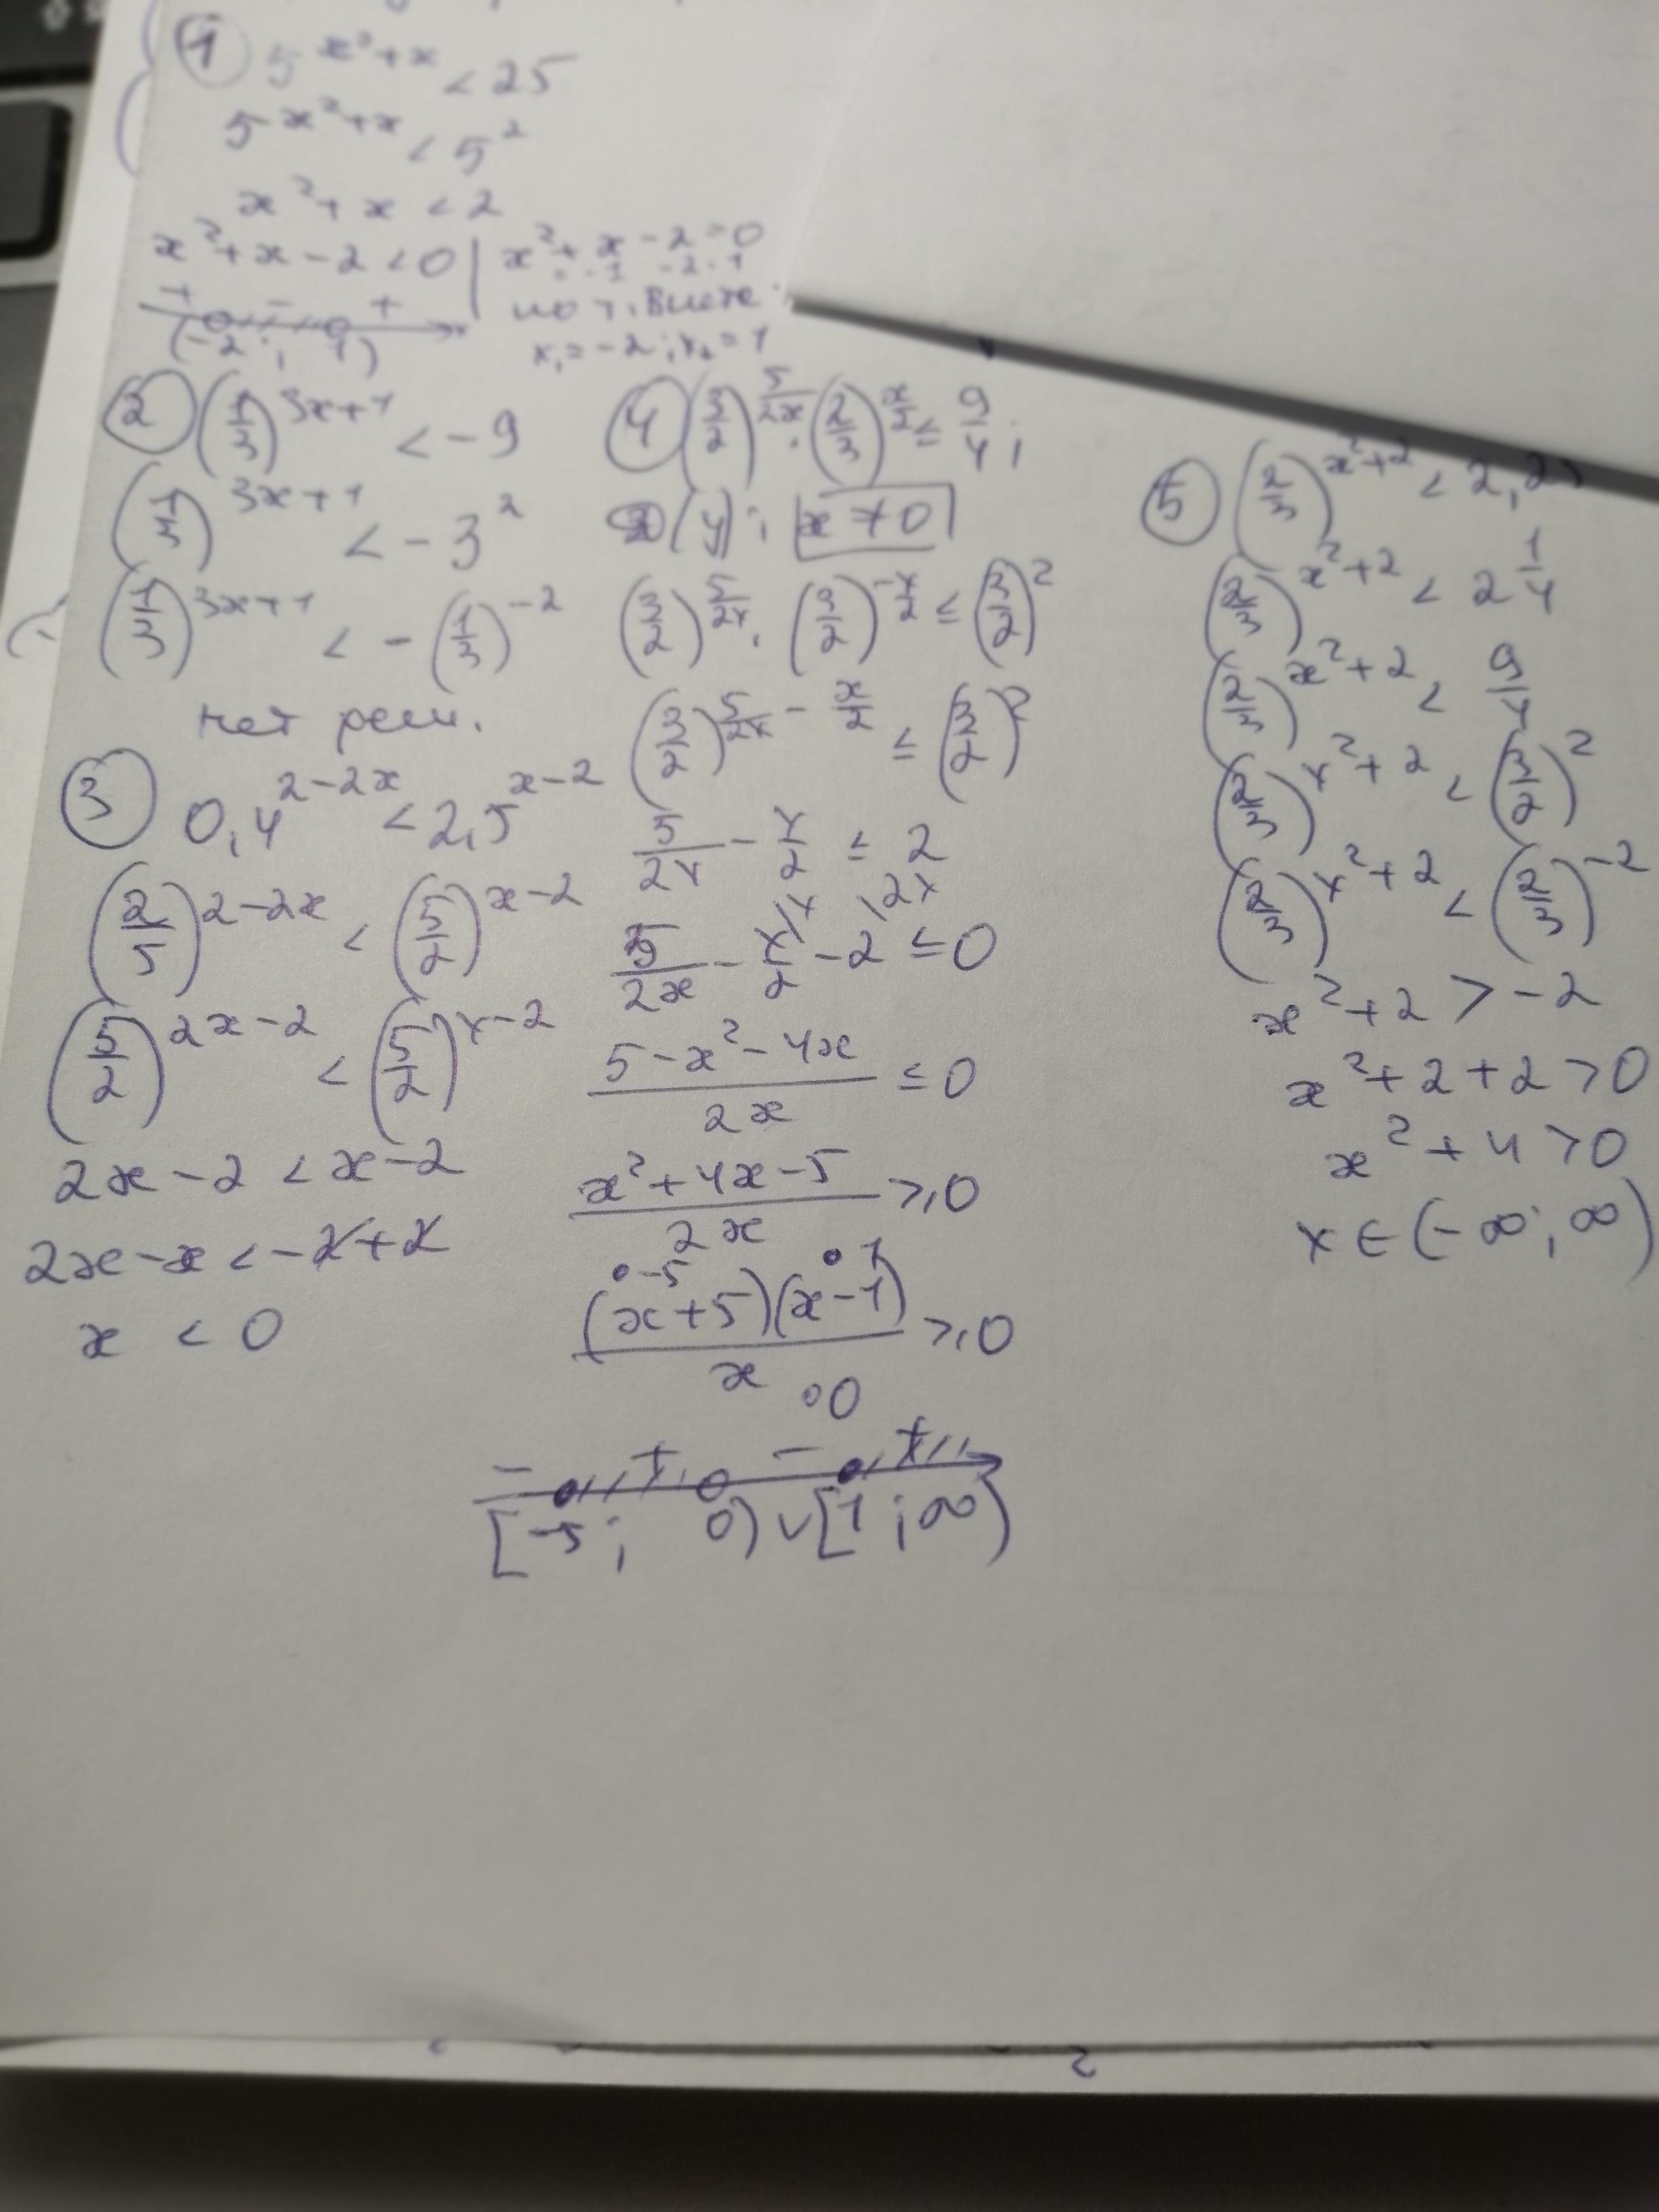 ① 5^(x²+x) < 25
5^(x²+x) < 5²
x² + x < 2
x² + x - 2 < 0 | x² + x - 2 = 0
= -1 -2·1
+ - + по т. Виета
(-2 ; 1) x₁ = -2 ; x₂ = 1
② (1/3)^(3x+1) < -9
(1/3)^(3x+1) < -3²
(1/3)^(3x+1) < -(1/3)^(-2)
нет реш.
③ 0,4^(2-2x) < 2,5^(x-2)
(2/5)^(2-2x) < (5/2)^(x-2)
(5/2)^(2x-2) < (5/2)^(x-2)
2x - 2 < x - 2
2x - x < -2 + 2
x < 0
④ (3/2)^(5/2x) · (2/3)^(x/2) ≤ 9/4 ;
(y) ; x ≠ 0
(3/2)^(5/2x) · (3/2)^(-x/2) ≤ (3/2)²
(3/2)^(5/2x - x/2) ≤ (3/2)²
5/2x - x/2 ≤ 2
\x \2x
5/2x - x/2 - 2 ≤ 0
(5 - x² - 4x)/2x ≤ 0
(x² + 4x - 5)/2x ≥ 0
• -5 • 1
(x+5)(x-1)/x ≥ 0
∘0
- + - +
[-5 ; 0) ∪ [1 ; ∞)
⑤ (2/3)^(x²+2) < 2,25
(2/3)^(x²+2) < 2 1/4
(2/3)^(x²+2) < 9/4
(2/3)^(x²+2) < (3/2)²
(2/3)^(x²+2) < (2/3)^(-2)
x² + 2 > -2
x² + 2 + 2 > 0
x² + 4 > 0
x ∈ (-∞ ; ∞)